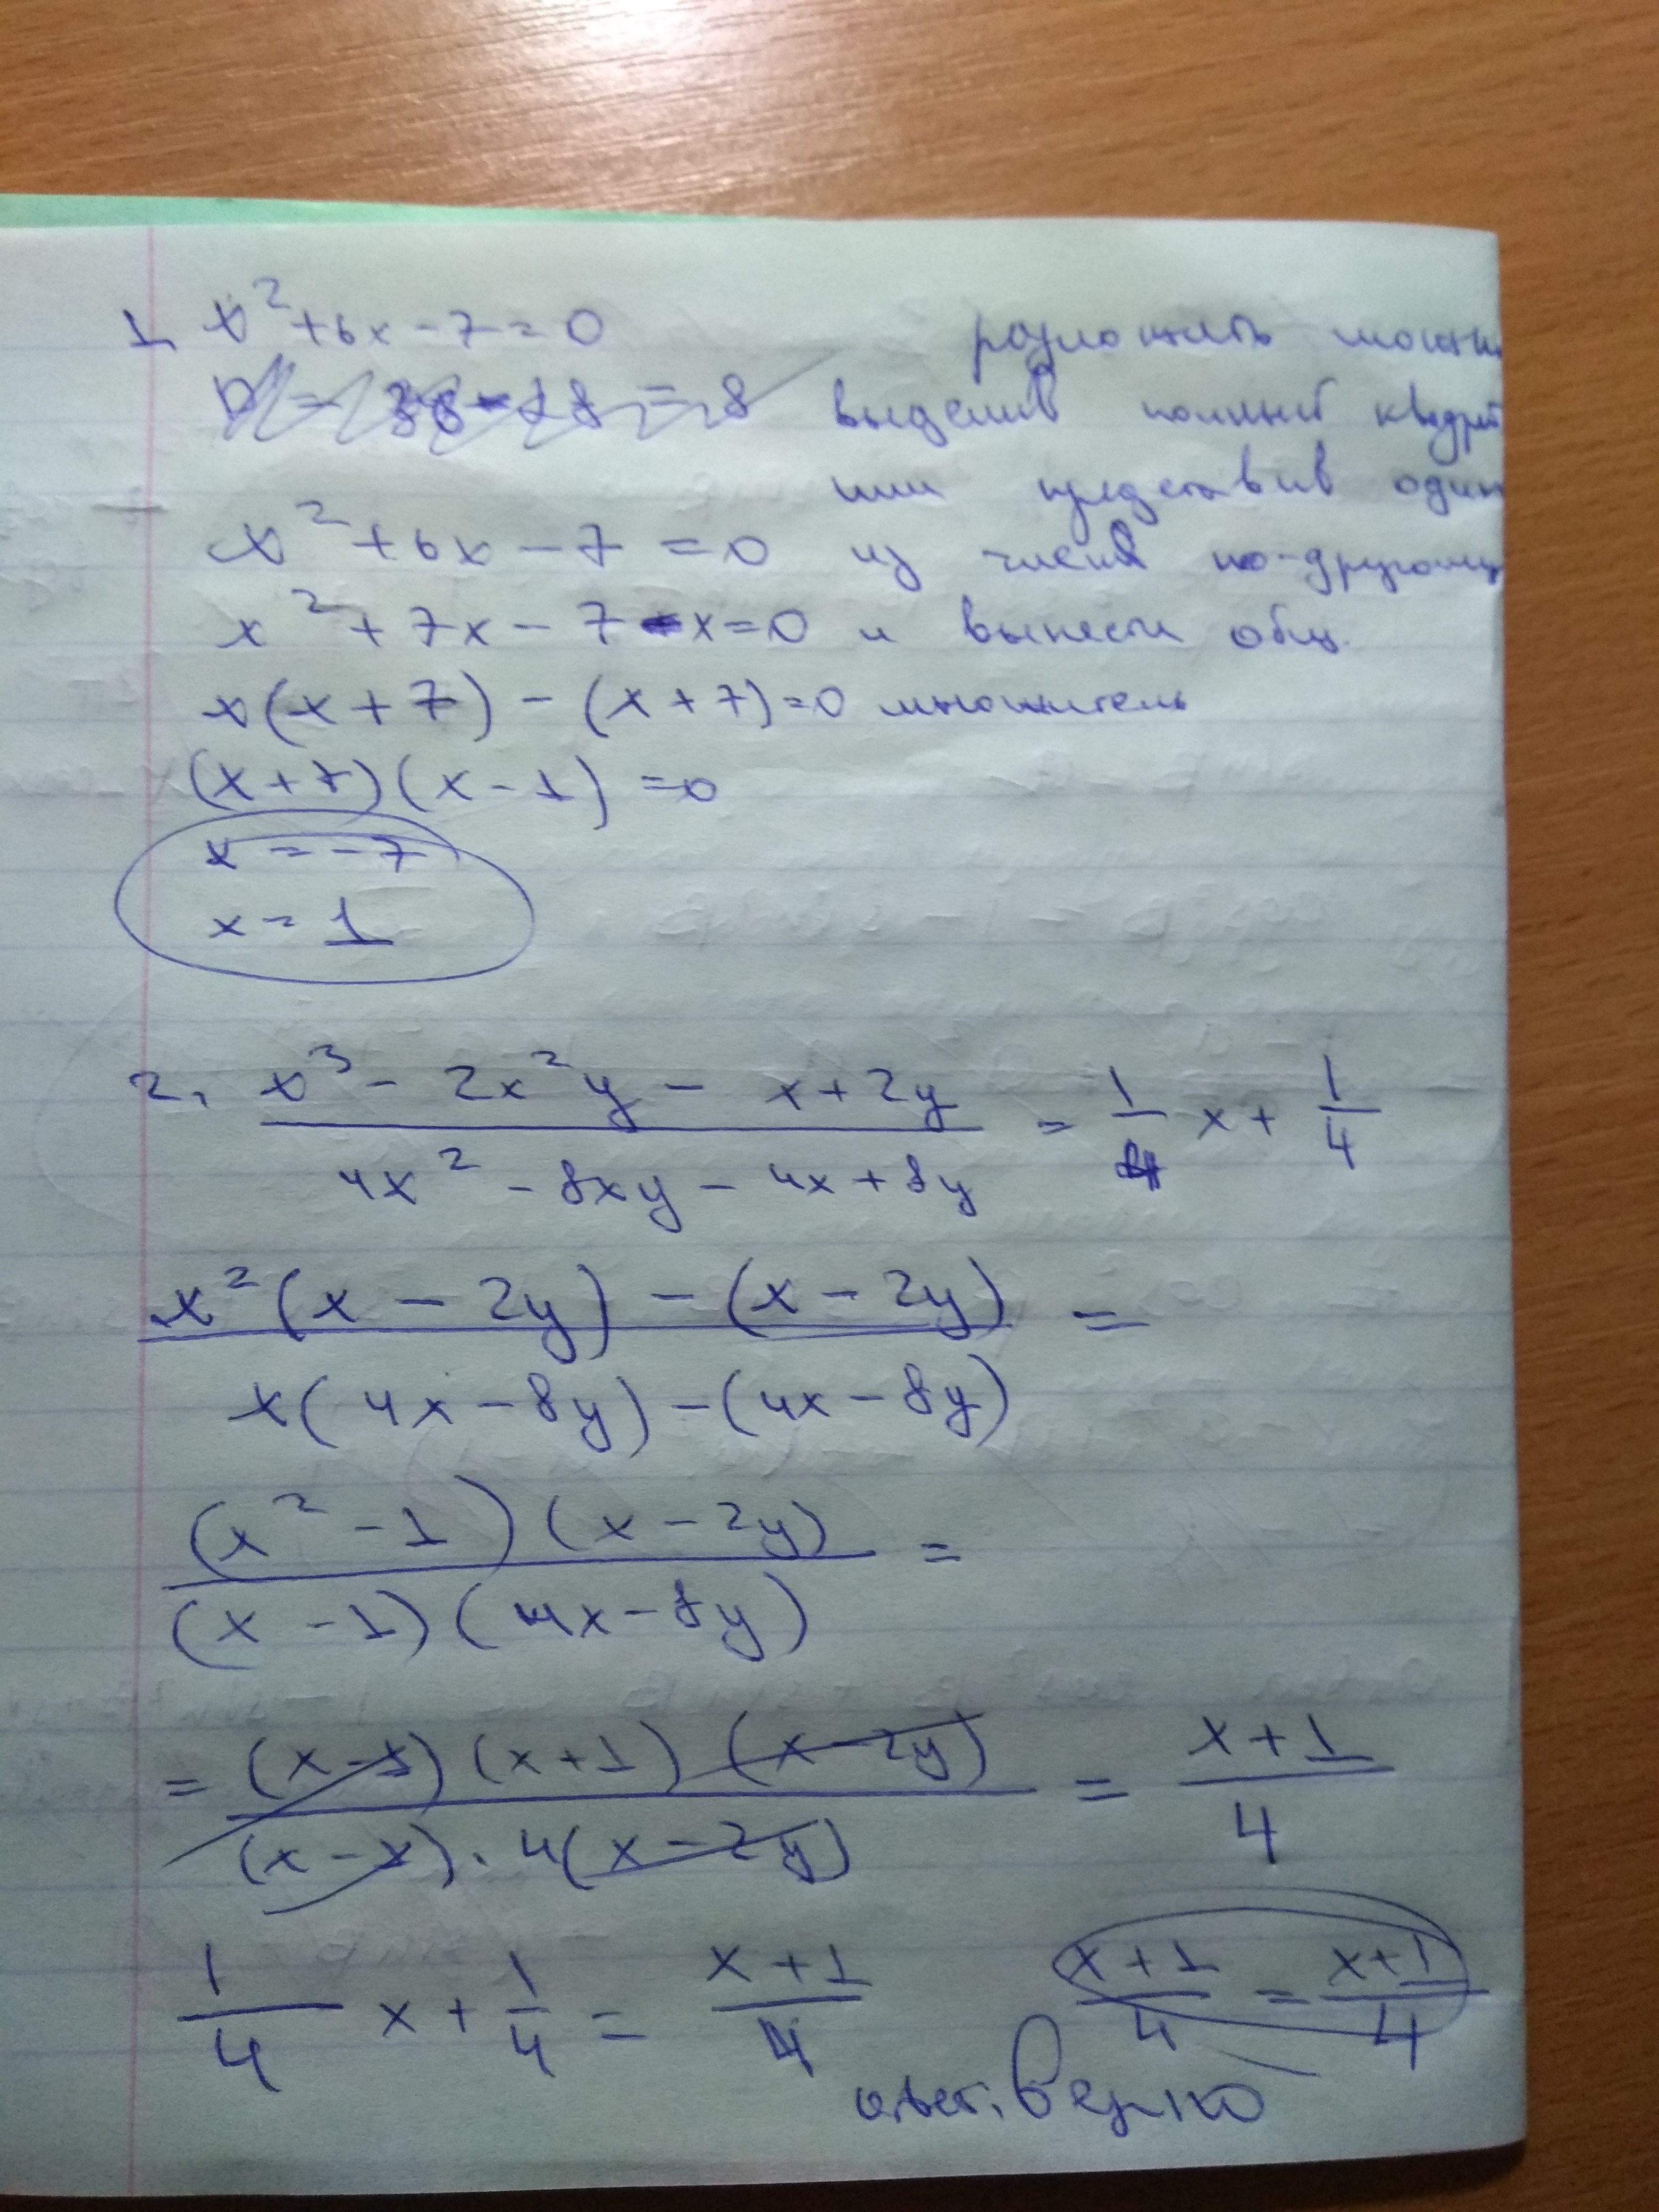 1 x²+6x-7=0
разложить можно
D = 36-28 = 8
выделив полный квадрат
или представив один
x²+6x-7=0 из членов по-другому
x²+7x-7-x=0 и вынести общ.
x(x+7)-(x+7)=0 множитель
(x+7)(x-1)=0
x=-7
x=1
2. (x³-2x²y-x+2y)/(4x²-8xy-4x+8y) = 1/4 x + 1/4
(x²(x-2y)-(x-2y))/(x(4x-8y)-(4x-8y)) =
((x²-1)(x-2y))/((x-1)(4x-8y)) =
= ((x-1)(x+1)(x-2y))/((x-1)·4(x-2y)) = (x+1)/4
1/4 x + 1/4 = (x+1)/4 (x+1)/4 = (x+1)/4
ответ: верно